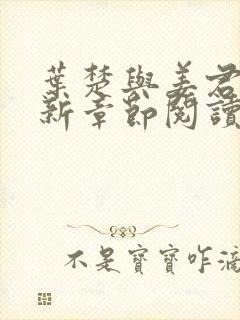 葉楚與姜君
新章節閱讀
不是寶寶咋滴